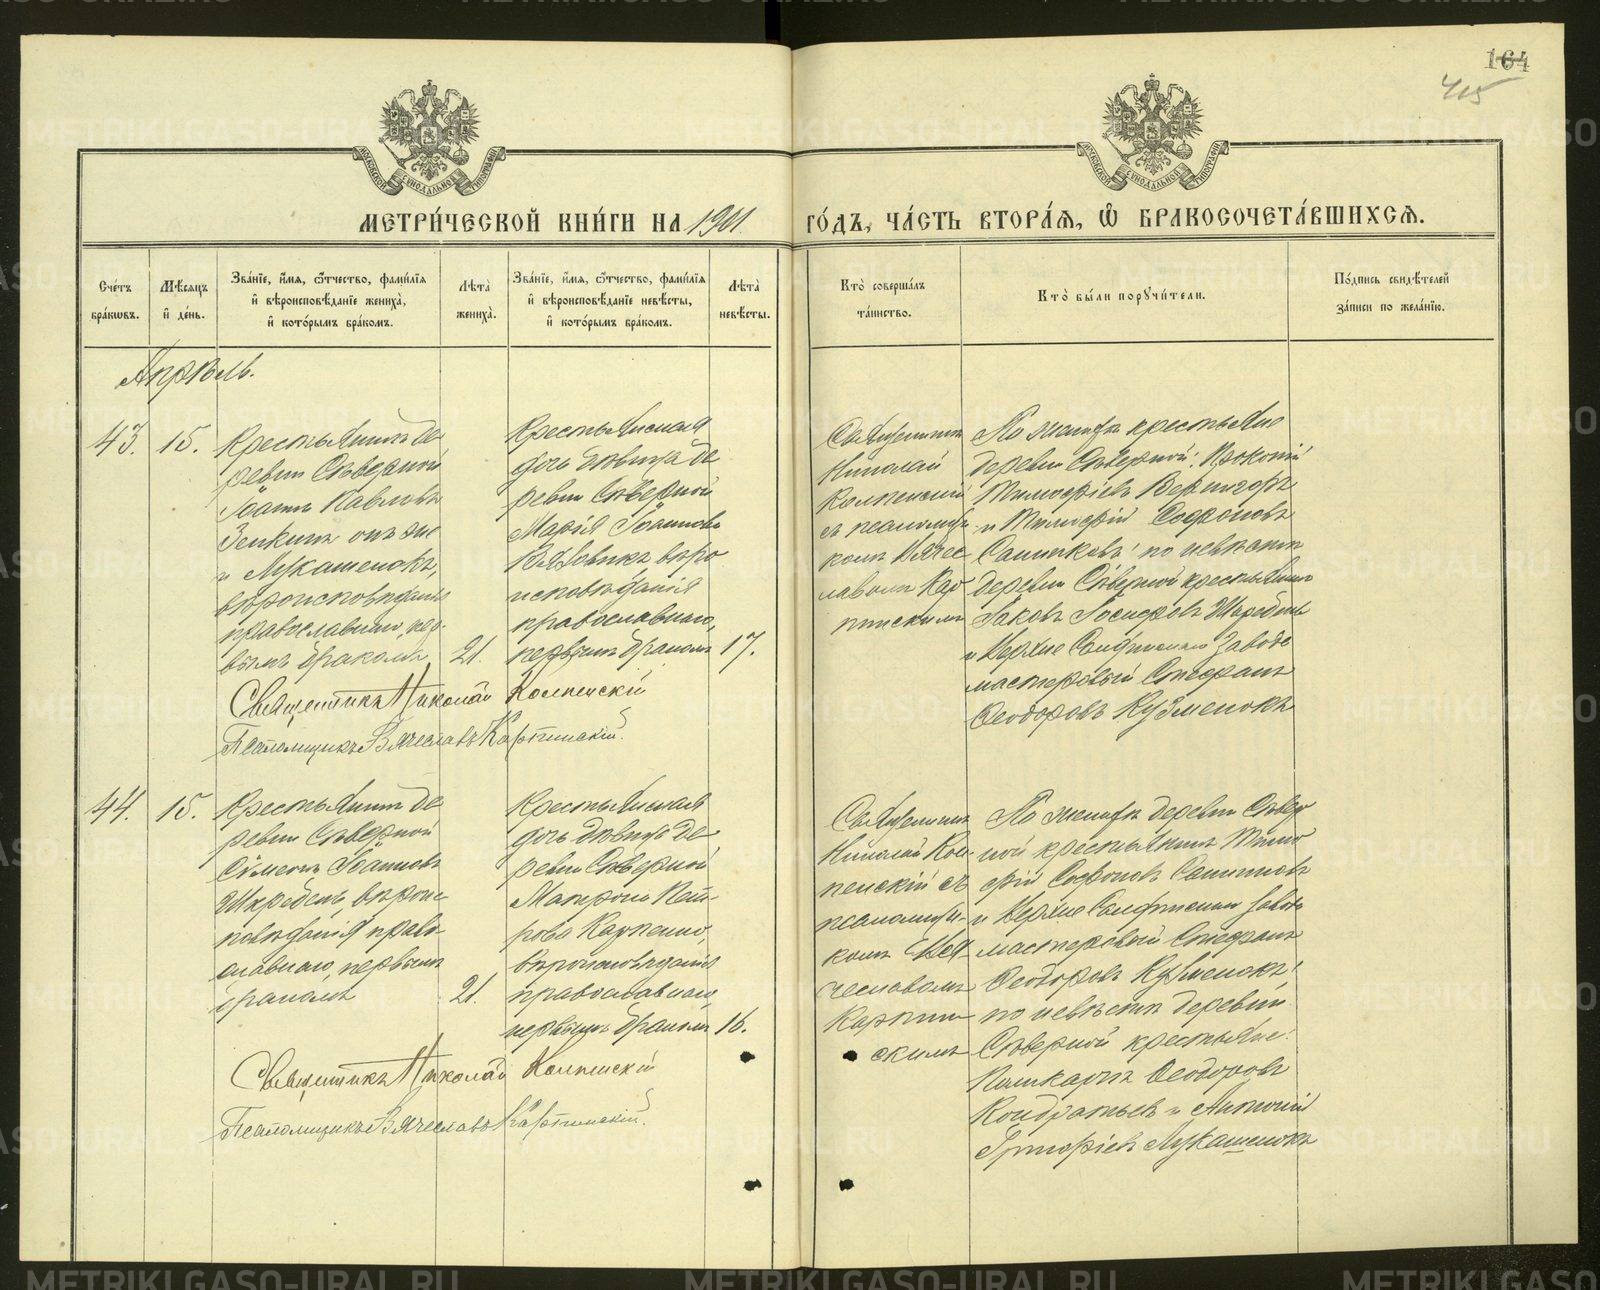 164
415
МЕТРИ́ЧЕСКОЙ КНИ́ГИ НА 1901 ГО́ДЪ, ЧА́СТЬ ВТОРА́Я, Ѡ БРАКОСОЧЕТА́ВШИХСЯ.
Сче́тъ
бра́кѡвъ.
Мѣ́сяцъ
и҆ де́нь.
Зва́нїе, и҆́мя, ѻ҆́тчество, фамі́лїя
и҆ вѣроисповѣ́данїе жениха̀,
и҆ кото́рымъ бра́комъ.
Лѣ́та
жениха̀.
Зва́нїе, и҆́мя, ѻ҆́тчество, фамі́лїя
и҆ вѣроисповѣ́данїе невѣ́сты,
и҆ кото́рымъ бра́комъ.
Лѣ́та
невѣ́сты.
Кто̀ соверша́лъ
та́инство.
Кто̀ бы́ли порꙋчи́тели.
По́дпись свидѣ́телей
за́писи по жела́нїю.
Апрѣль.
43.
15.
Крестьянинъ де
ревни Сѣверной
Іоаннъ Павловъ
Зенкинъ онъ же
и Лукашенокъ,
вѣроисповѣданія
православнаго, пер-
вымъ бракомъ
21.
Крестьянская
дочь дѣвица де
ревни Сѣверной
Марія Іоаннова
вѣро
исповѣданія
православнаго,
первымъ бракомъ
17.
Священникъ
Николай
Колпенскій
съ псаломщи-
комъ Вячес
лавомъ Кар
пинскимъ
По женихѣ крестьяне
деревни Сѣверной: Прокопій
Тимофѣевъ
и Тимофей Софроновъ
Санниковъ; по невѣстѣ
деревни Сѣверной крестьянинъ
Іаковъ Іосифовъ
и Верхне Саифинскаго завода
мастеровый Стефанъ
Ѳеодоровъ Кузменокъ
Священникъ Николай Колпенскій
Псаломщикъ Вячеславъ Карпинскій.
44.
15.
Крестьянинъ де
ревни Сѣверной
Сѵмеонъ Іоанновъ
Шкребень вѣроис
повѣданія право-
славнаго, первымъ
бракомъ
21.
Крестьянская
дочь дѣвица де
ревни Сѣверной
Матрона Пет-
рова Карпенко,
вѣроисповѣданія
православнаго
первымъ бракомъ
16.
Священникъ
Николай Кол-
пенскій съ
псаломщи-
комъ Вя
чеславомъ
Карпин
скимъ
По женихѣ деревни Сѣвер
ной крестьянинъ Тимо
фей Софроновъ Санниковъ
и Верхне Саифинскаго завода
мастеровый Стефанъ
Ѳеодоровъ Кузменокъ;
по невѣстѣ деревни
Сѣверной крестьяне:
Ѳеодоровъ
Кондратьевъ и Антоній
Григоріевъ Лукашенокъ
Священникъ Николай Колпенскій
Псаломщикъ Вячеславъ Карпинскій.
METRIKI.GASO-URAL.RU